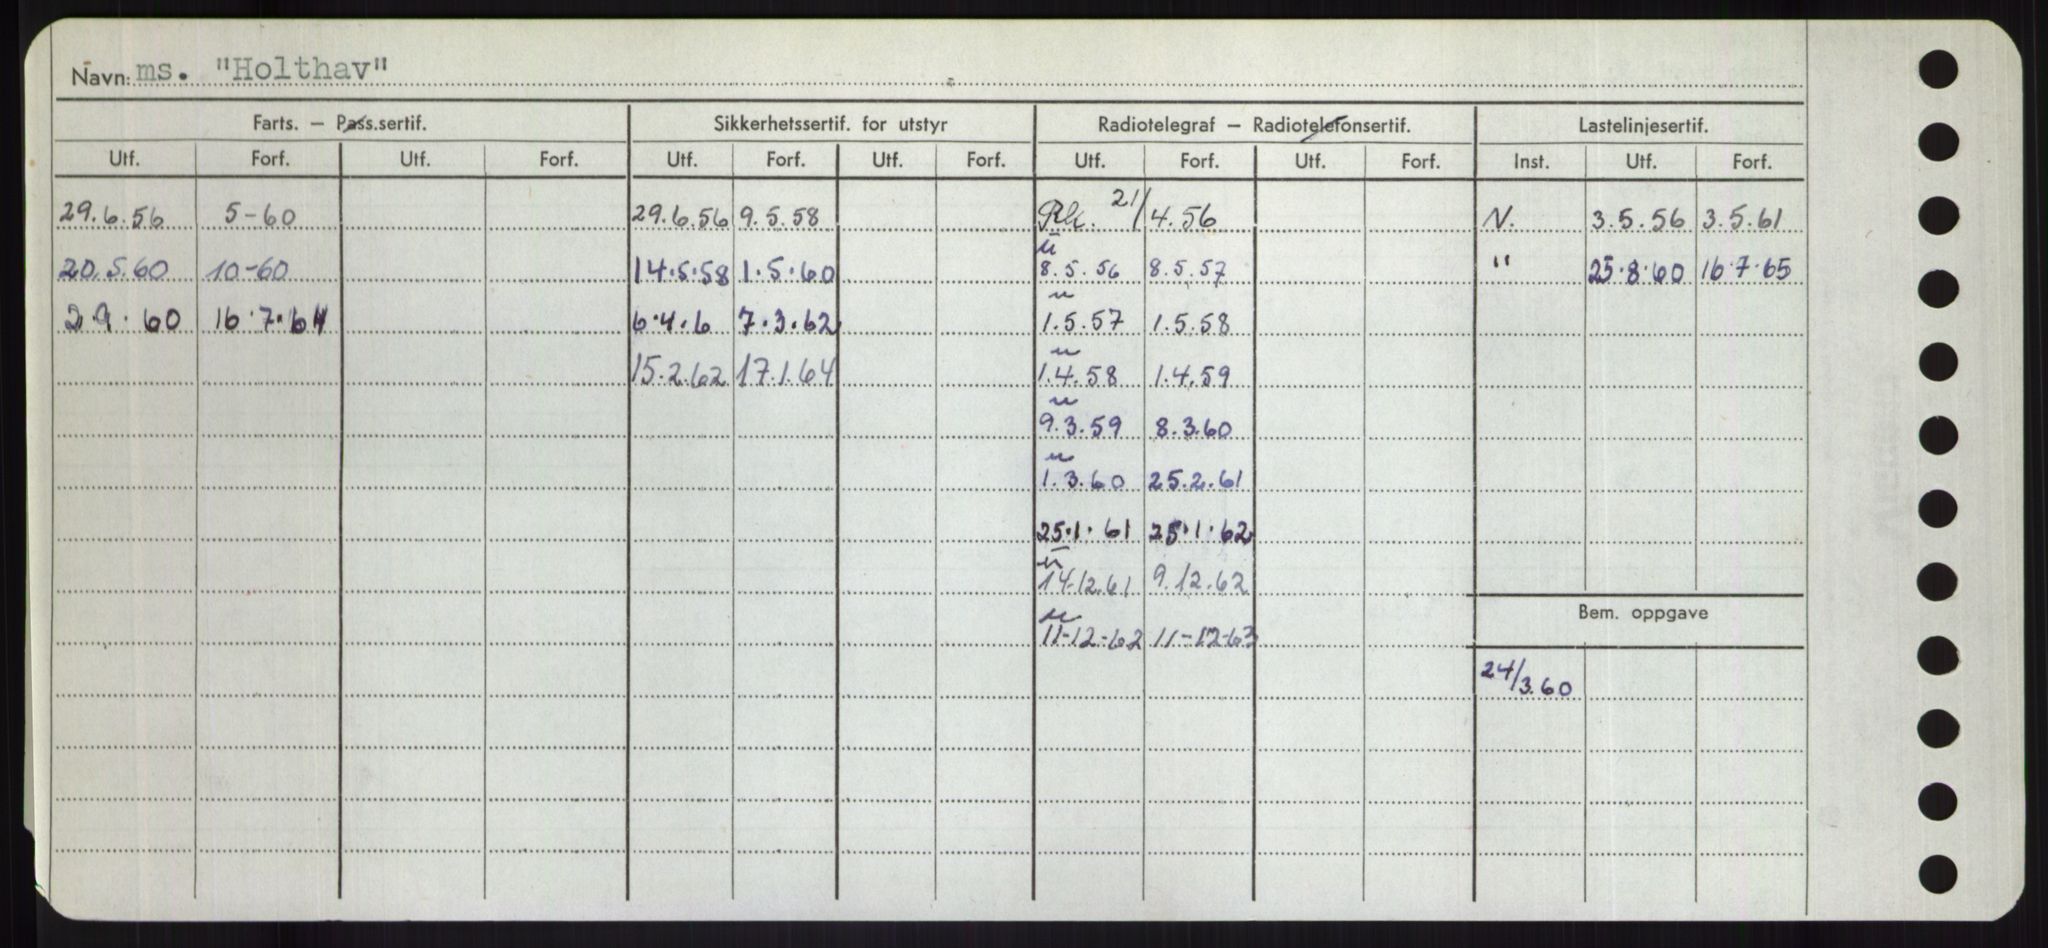 Navn: ms. "Holthav"
Farts. — Pass.sertif. Sikkerhetssertif. for utstyr Radiotelegraf — Radiotelefonsertif. Lastelinjesertif.
Utf. Forf. Utf. Forf. Utf. Forf. Utf. Forf. Utf. Forf. Utf. Forf. Inst. Utf. Forf.
29.6.56 5-60 29.6.56 9.5.58 21/4.56 N. 3.5.56 3.5.61
20.5.60 10-60 14.5.58 1.5.60 8.5.56 8.5.57 " 25.8.60 16.7.65
2.9.60 16.7.64 6.4.6 7.3.62 1.5.57 1.5.58
15.2.62 17.1.64 1.4.58 1.4.59
9.3.59 8.3.60
1.3.60 25.2.61
25.1.61 25.1.62
14.12.61 9.12.62
Bem. oppgave
11-12-62 11-12-63
24/3.60